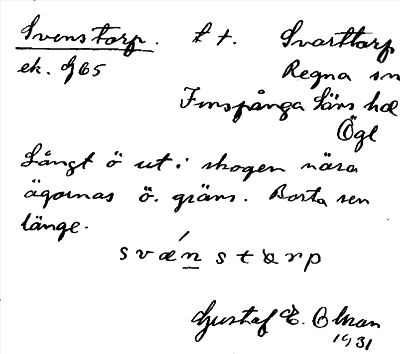 Svenstorp. t t. Svarttorp
ek. J65
Regna sn
Finspånga läns hd
Ögl
Långt ö ut i skogen nära
ägornas ö. gräns. Borta sen
länge.
svǽnstɑrp
Gustaf E. Olsson
1931